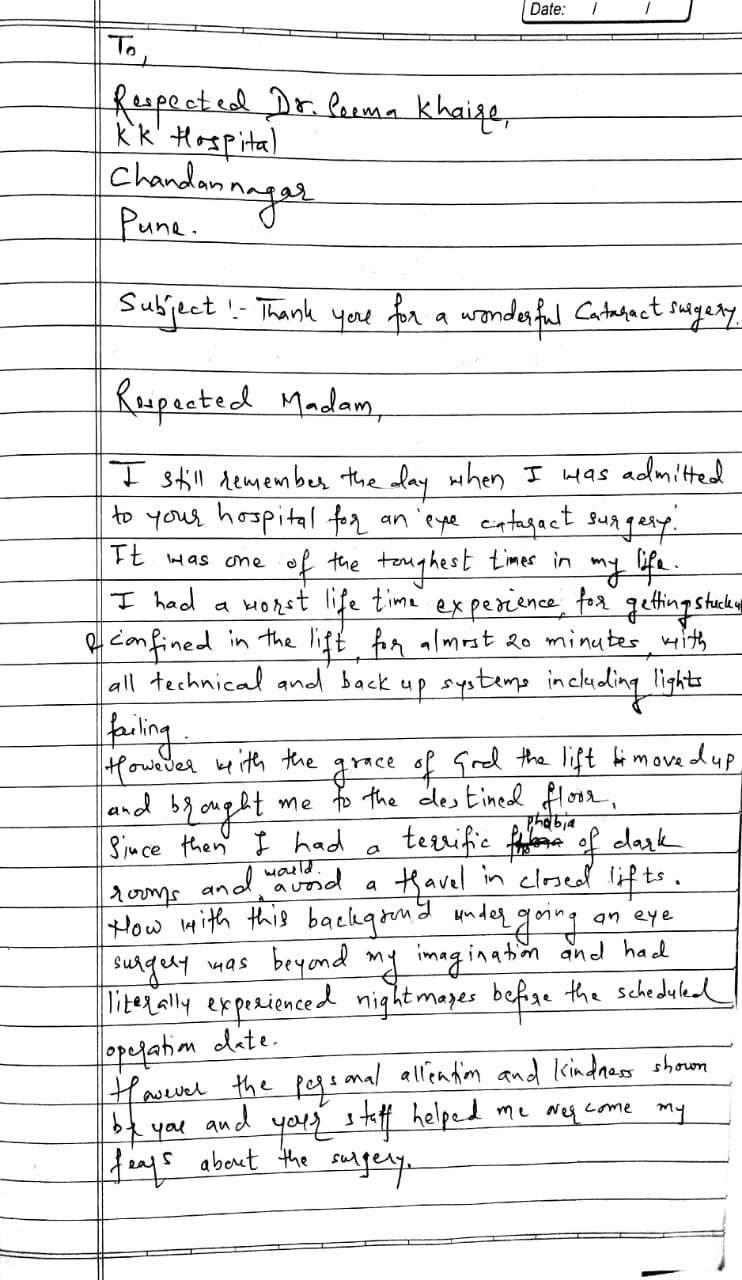 Date: / /
To,
Respected Dr. Seema Khaire,
KK Hospital
Chandannagar
Pune.
Subject :- Thank you for a wonderful Cataract surgery.
Respected Madam,
I still remember the day when I was admitted
to your hospital for an 'eye cataract surgery'.
It was one of the toughest times in my life.
I had a worst life time experience, for getting stuck up
& confined in the lift, for almost 20 minutes, with
all technical and back up systems including lights
failing.
However with the grace of God the lift moved up
and brought me to the destined floor.
Since then I had a terrific phobia of dark
rooms and would avoid a travel in closed lifts.
Now with this backgrond undergoing an eye
surgery was beyond my imagination and had
literally experienced nightmares before the scheduled
operation date.
However the personal attention and kindness shown
by you and your staff helped me overcome my
fears about the surgery.